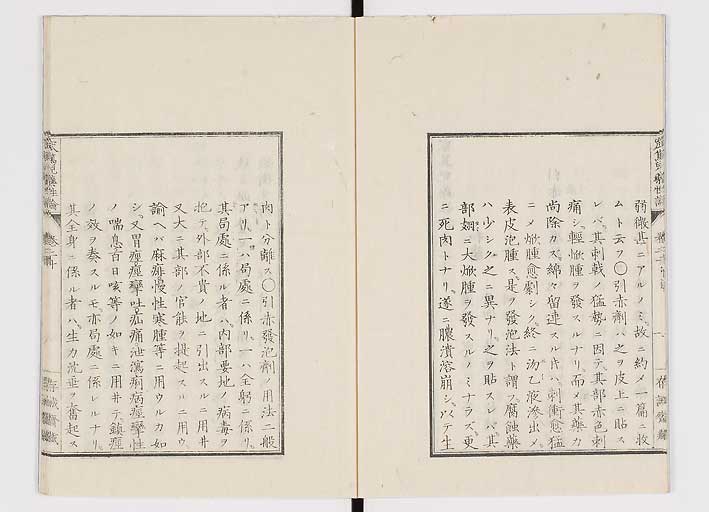 弱微甚ニアルノミ、故ニ約メ一篇ニ收
ムト云フ〇引赤劑ハ之ヲ皮上ニ貼ス
レバ、其刺戟ノ猛勢ニ因テ、其部赤色刺
痛シ、輕焮腫ヲ發スルナリ、而メ其藥力
尚除カズ綿々留連スル片ハ、刺衝愈猛
ニメ焮腫愈劇シク、終ニ沕乙液滲出メ、
表皮泡腫ス、是ヲ發泡法ト謂フ、腐蝕藥
ハ少シク之ニ異ナリ、之ヲ貼スレバ、其
部煽ニ大焮腫ヲ發スルノミナラズ、更
ニ死肉トナリ、遂ニ膿潰溶崩シ、以テ生
肉ト分離ス〇引赤發泡劑ノ用法二般
アリ、一ハ局處ニ係リ、一ハ全躬ニ係リ、
其局處ニ係ル者ハ、内部要地ノ病毒ヲ
把テ外部不貴ノ地ニ引出スルニ用井
又大ニ其部ノ官能ヲ提起スルニ用ウ、
諭ヘバ麻痺慢性寒腫等ニ用ウルカ如
シ、又胃痙攣吐疝痛泄瀉痢病痙攣性
ノ喘息百日咳等ノ如キニ用井テ鎮痙
ノ效ヲ奏スルモ、亦局處ニ係レルナリ、
其全身ニ係ル者ハ、生力沈垂ヲ奮起ス